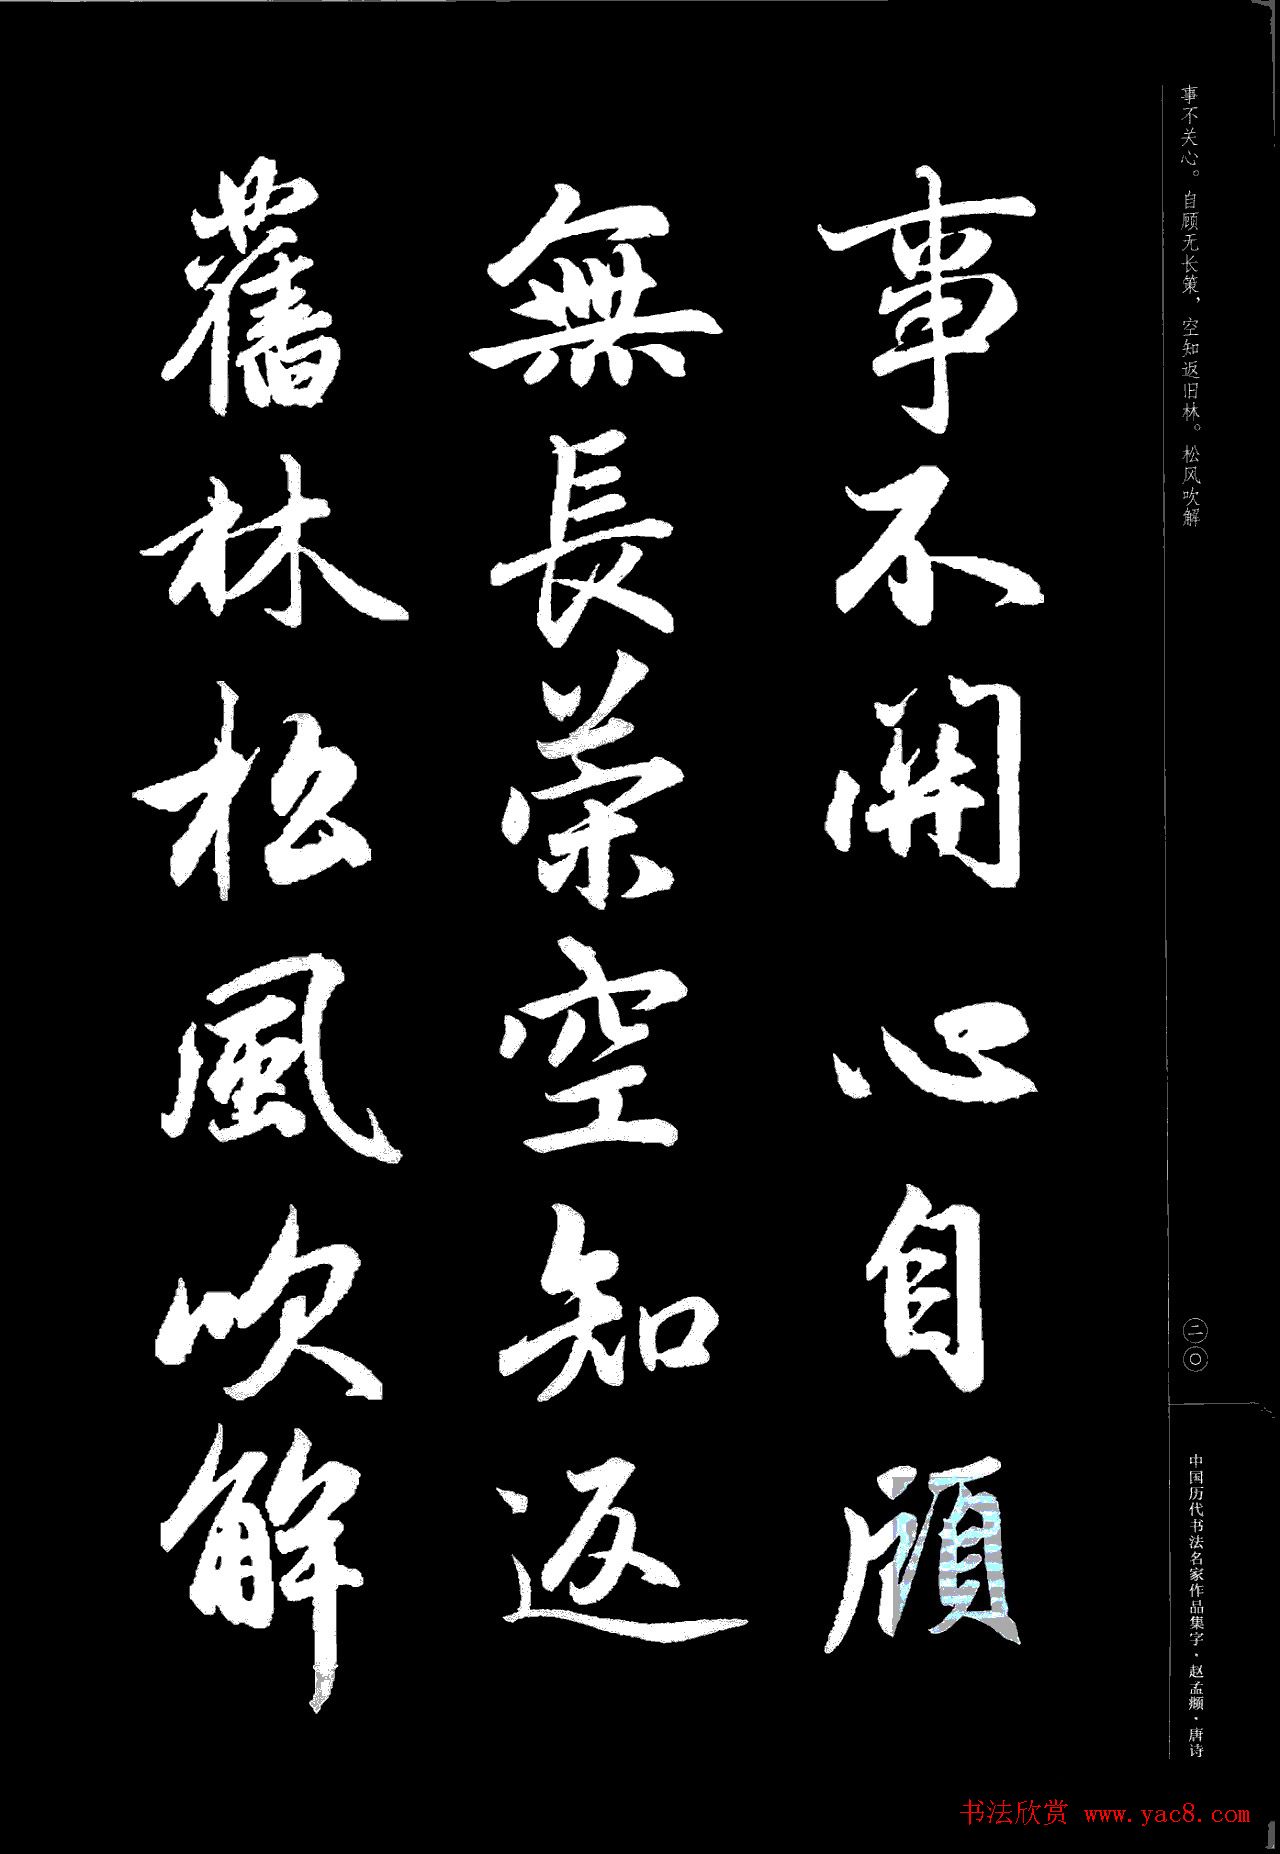 事不關心自顧
無長策空知返
舊林松風吹解
事不关心。自顾无长策，空知返旧林。松风吹解
二〇
中国历代书法名家作品集字·赵孟頫·唐诗
书法欣赏 www.yac8.com